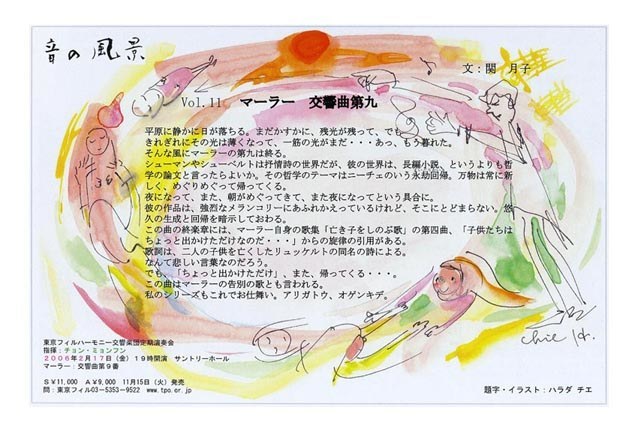 音の風景
文：関　月子
Vol.11　マーラー　交響曲第九
平原に静かに日が落ちる。まだかすかに、残光が残って、でも
きれぎれにその光は薄くなって、一筋の光がまだ・・・あっ、もう暮れた。
そんな風にマーラーの第九は終る。
シューマンやシューベルトは抒情詩の世界だが、彼の世界は、長編小説、というよりも哲
学の論文と言ったらよいか。その哲学のテーマはニーチェのいう永劫回帰。万物は常に新
しく、めぐりめぐって帰ってくる。
夜になって、また、朝がめぐってきて、また夜になってという具合に。
彼の作品は、強烈なメランコリーにあふれかえっているけれど、そこにとどまらない。悠
久の生成と回帰を暗示しておわる。
この曲の終楽章には、マーラー自身の歌集「亡き子をしのぶ歌」の第四曲、「子供たちは
ちょっと出かけただけなのだ・・・」からの旋律の引用がある。
歌詞は、二人の子供を亡くしたリュッケルトの同名の詩による。
なんて悲しい言葉なのだろう。
でも、「ちょっと出かけただけ」、また、帰ってくる・・・。
この曲はマーラーの告別の歌とも言われる。
私のシリーズもこれでお仕舞い。アリガトウ、オゲンキデ。
Chie H.
東京フィルハーモニー交響楽団定期演奏会
指揮：チョン・ミョンフン
2006年2月17日（金）19時開演　サントリーホール
マーラー：交響曲第9番
S￥11,000　A￥9,000　11月15日（火）発売
問：東京フィル03-5353-9522　www.tpo.or.jp
題字・イラスト：ハラダ チエ